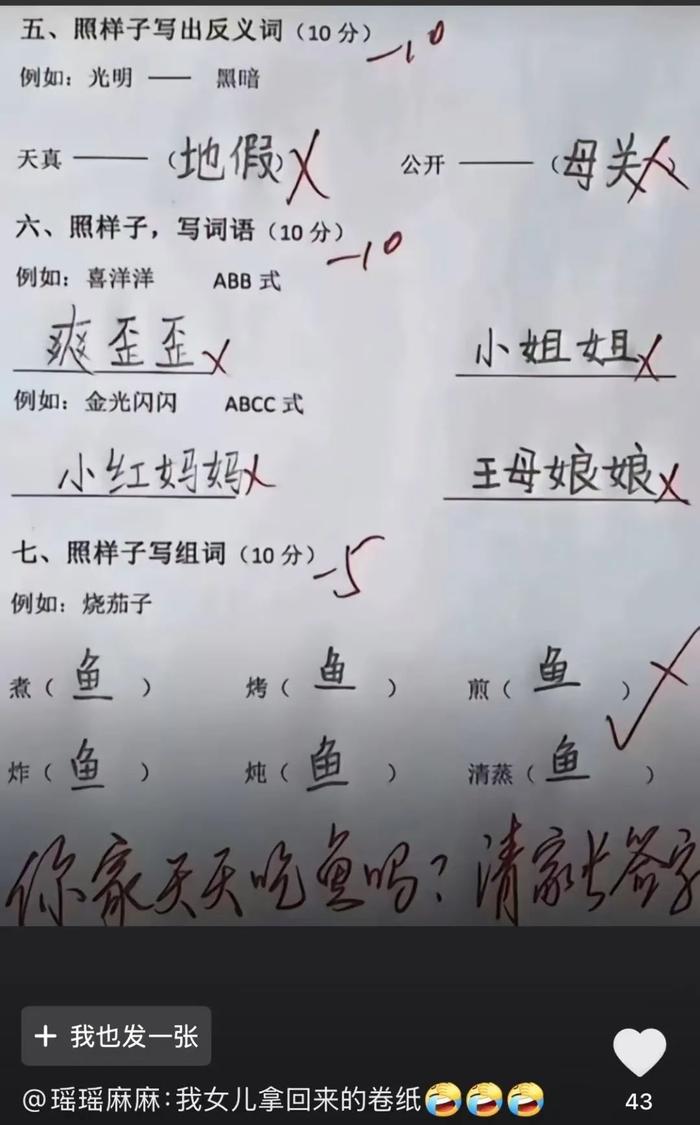 五、照样子写出反义词（10 分） -10
例如：光明 —— 黑暗
天真 ——— （地假） 公开 ——— （母关）
六、照样子，写词语（10 分） -10
例如：喜洋洋 ABB 式
爽歪歪 小姐姐
例如：金光闪闪 ABCC 式
小红妈妈 王母娘娘
七、照样子写组词（10 分） -5
例如：烧茄子
煮（ 鱼 ） 烤（ 鱼 ） 煎（ 鱼 ）
炸（ 鱼 ） 炖（ 鱼 ） 清蒸（ 鱼 ）
你家天天吃鱼吗？请家长签字
+ 我也发一张
@瑶瑶麻麻:我女儿拿回来的卷纸🤣🤣🤣 43